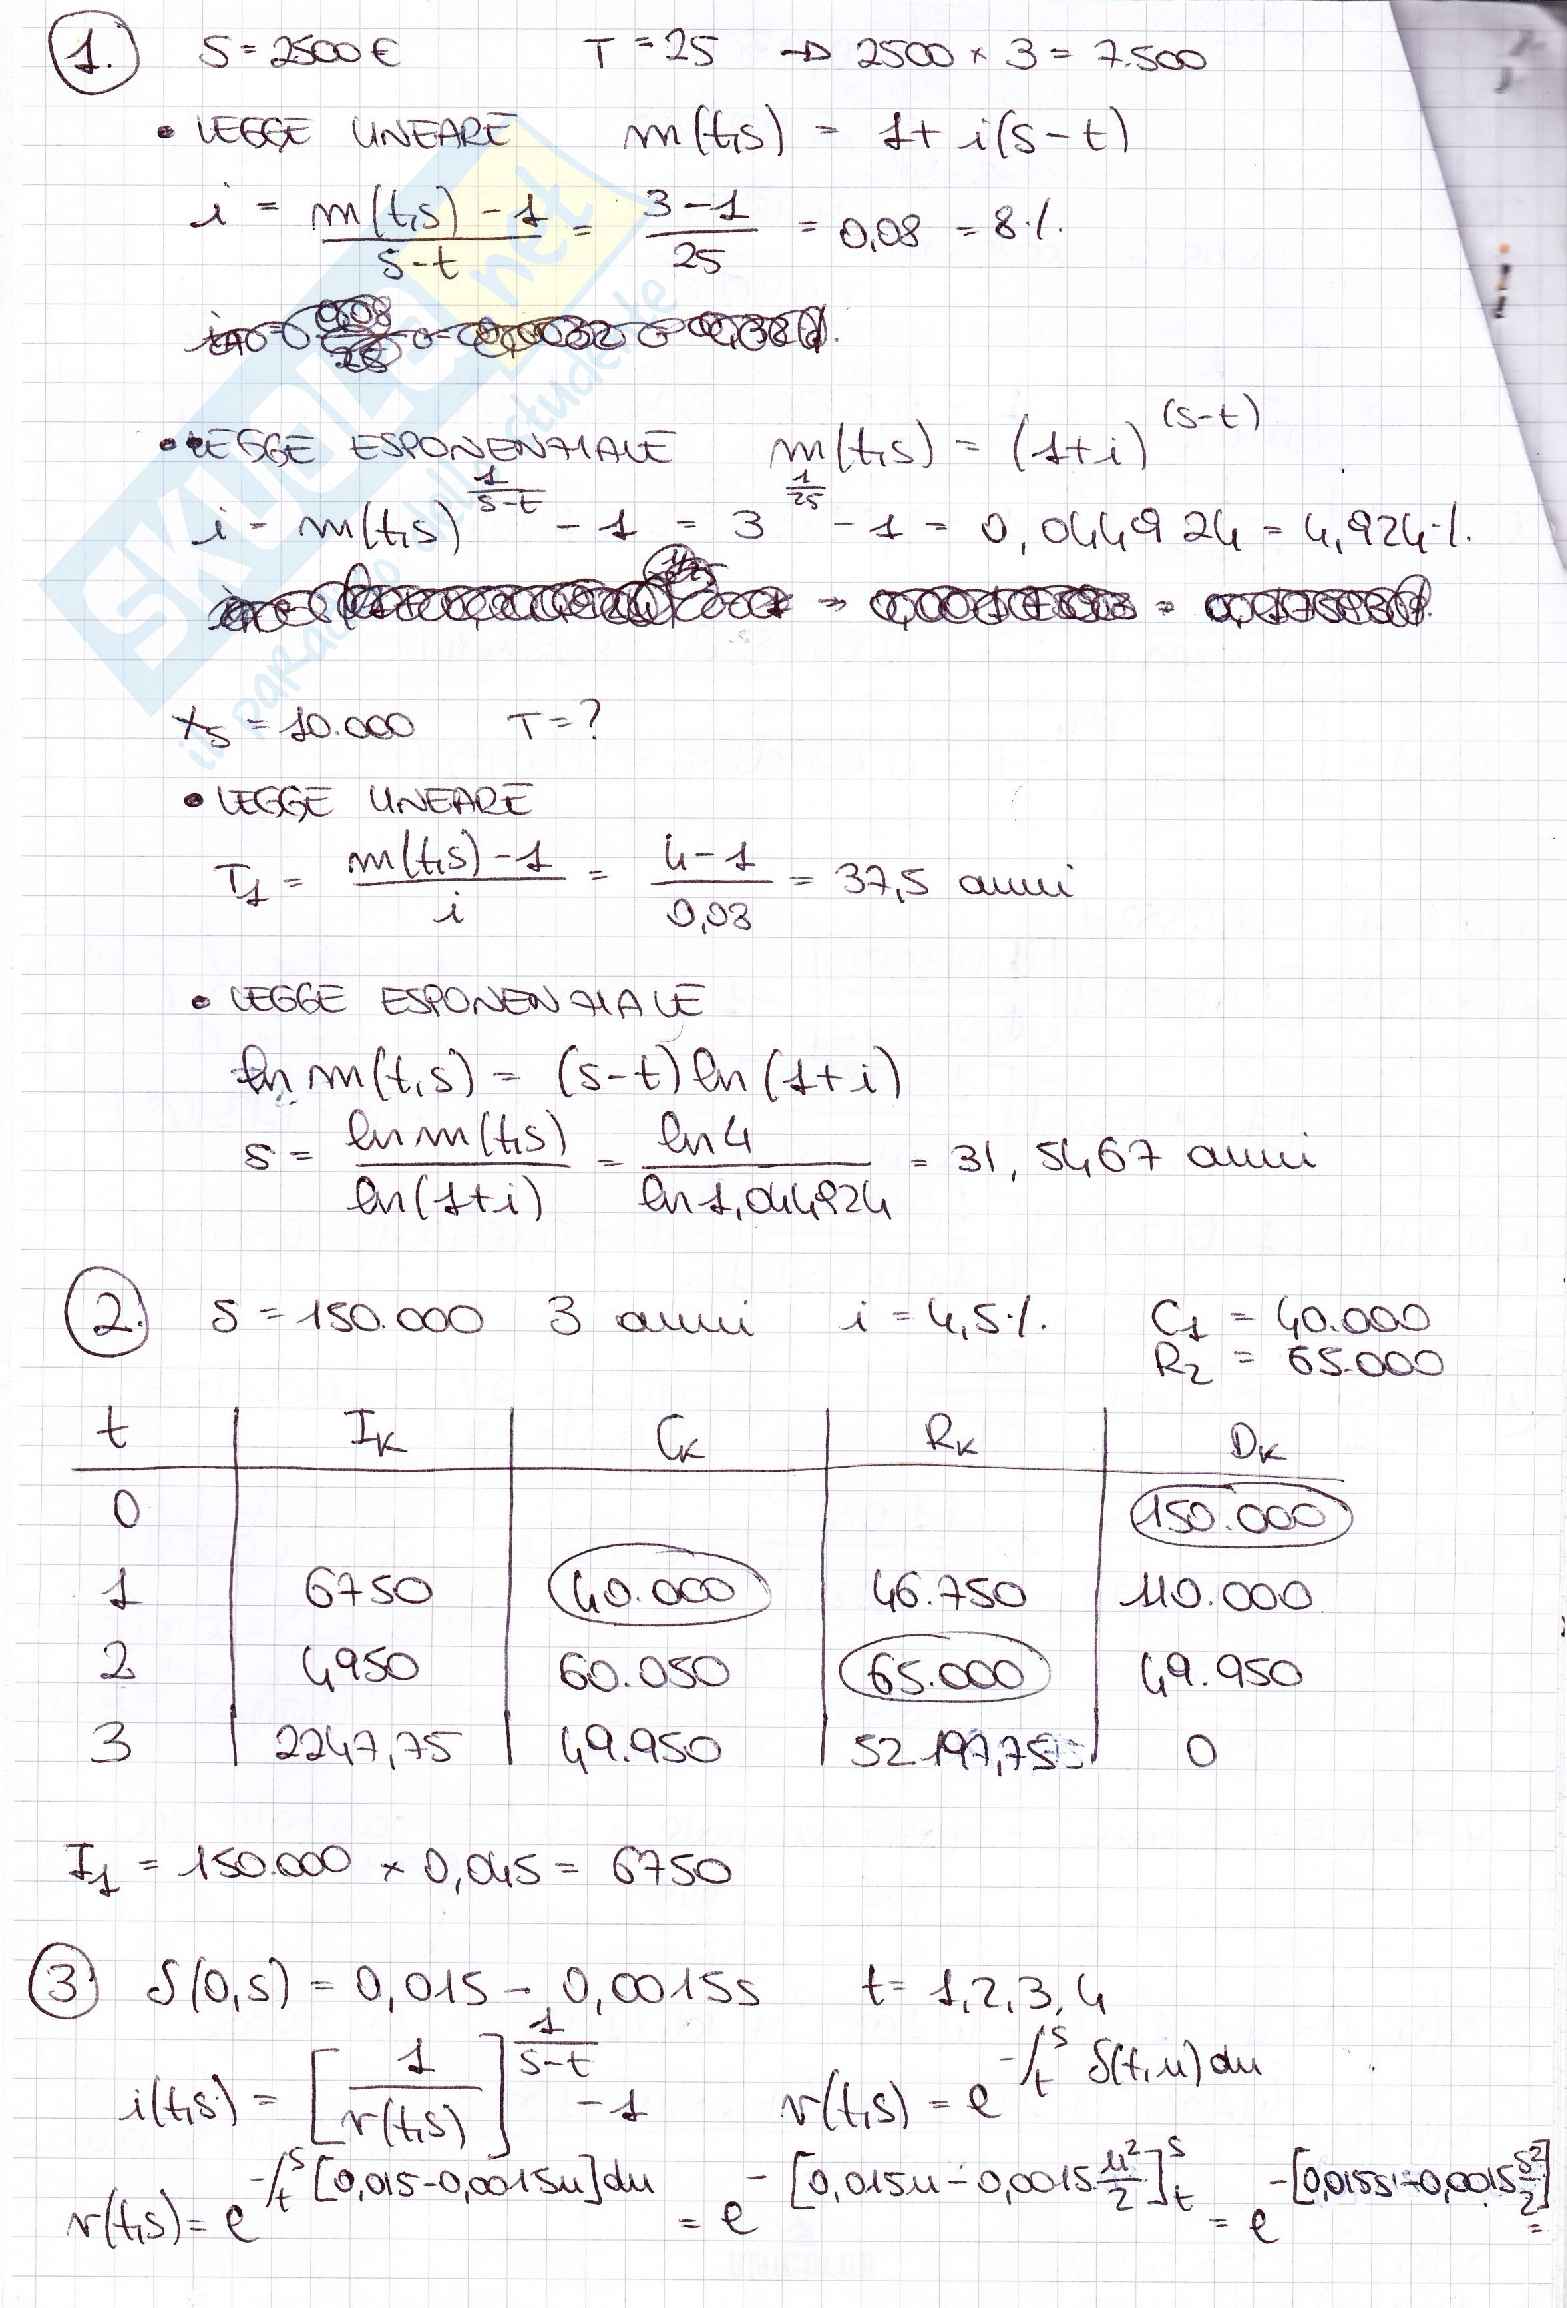 1. S = 2500 € T = 25 → 2500 × 3 = 7.500
• LEGGE LINEARE m(t,s) = 1 + i(s-t)
i = m(t,s) - 1 / s-t = 3-1 / 25 = 0,08 = 8%.
• LEGGE ESPONENZIALE m(t,s) = (1+i)^(s-t)
i = m(t,s)^(1/s-t) - 1 = 3^(1/25) - 1 = 0,044924 = 4,924%.
x_s = 10.000 T = ?
• LEGGE LINEARE
T1 = m(t,s) - 1 / i = 4-1 / 0,08 = 37,5 anni
• LEGGE ESPONENZIALE
ln m(t,s) = (s-t) ln(1+i)
s = ln m(t,s) / ln(1+i) = ln 4 / ln 1,044924 = 31,5467 anni
2. S = 150.000 3 anni i = 4,5%. C1 = 40.000
R2 = 65.000
t I_K C_K R_K D_K
0 150.000
1 6750 40.000 46.750 110.000
2 4950 60.050 65.000 49.950
3 2247,75 49.950 52.197,75 0
I1 = 150.000 × 0,045 = 6750
3 δ(0,s) = 0,015 - 0,0015s t = 1,2,3,4
i(t,s) = [1 / v(t,s)]^(1/s-t) - 1 v(t,s) = e^(-∫_t^s δ(t,u)du)
v(t,s) = e^(-∫_t^s [0,015-0,0015u]du) = e^(-[0,015u-0,0015 u²/2]_t^s) = e^(-[0,015s-0,0015 s²/2]) =
SKUOLA.net
il paradiso dello studente